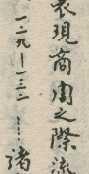 表現商周之際流
一二九—一三二……諸